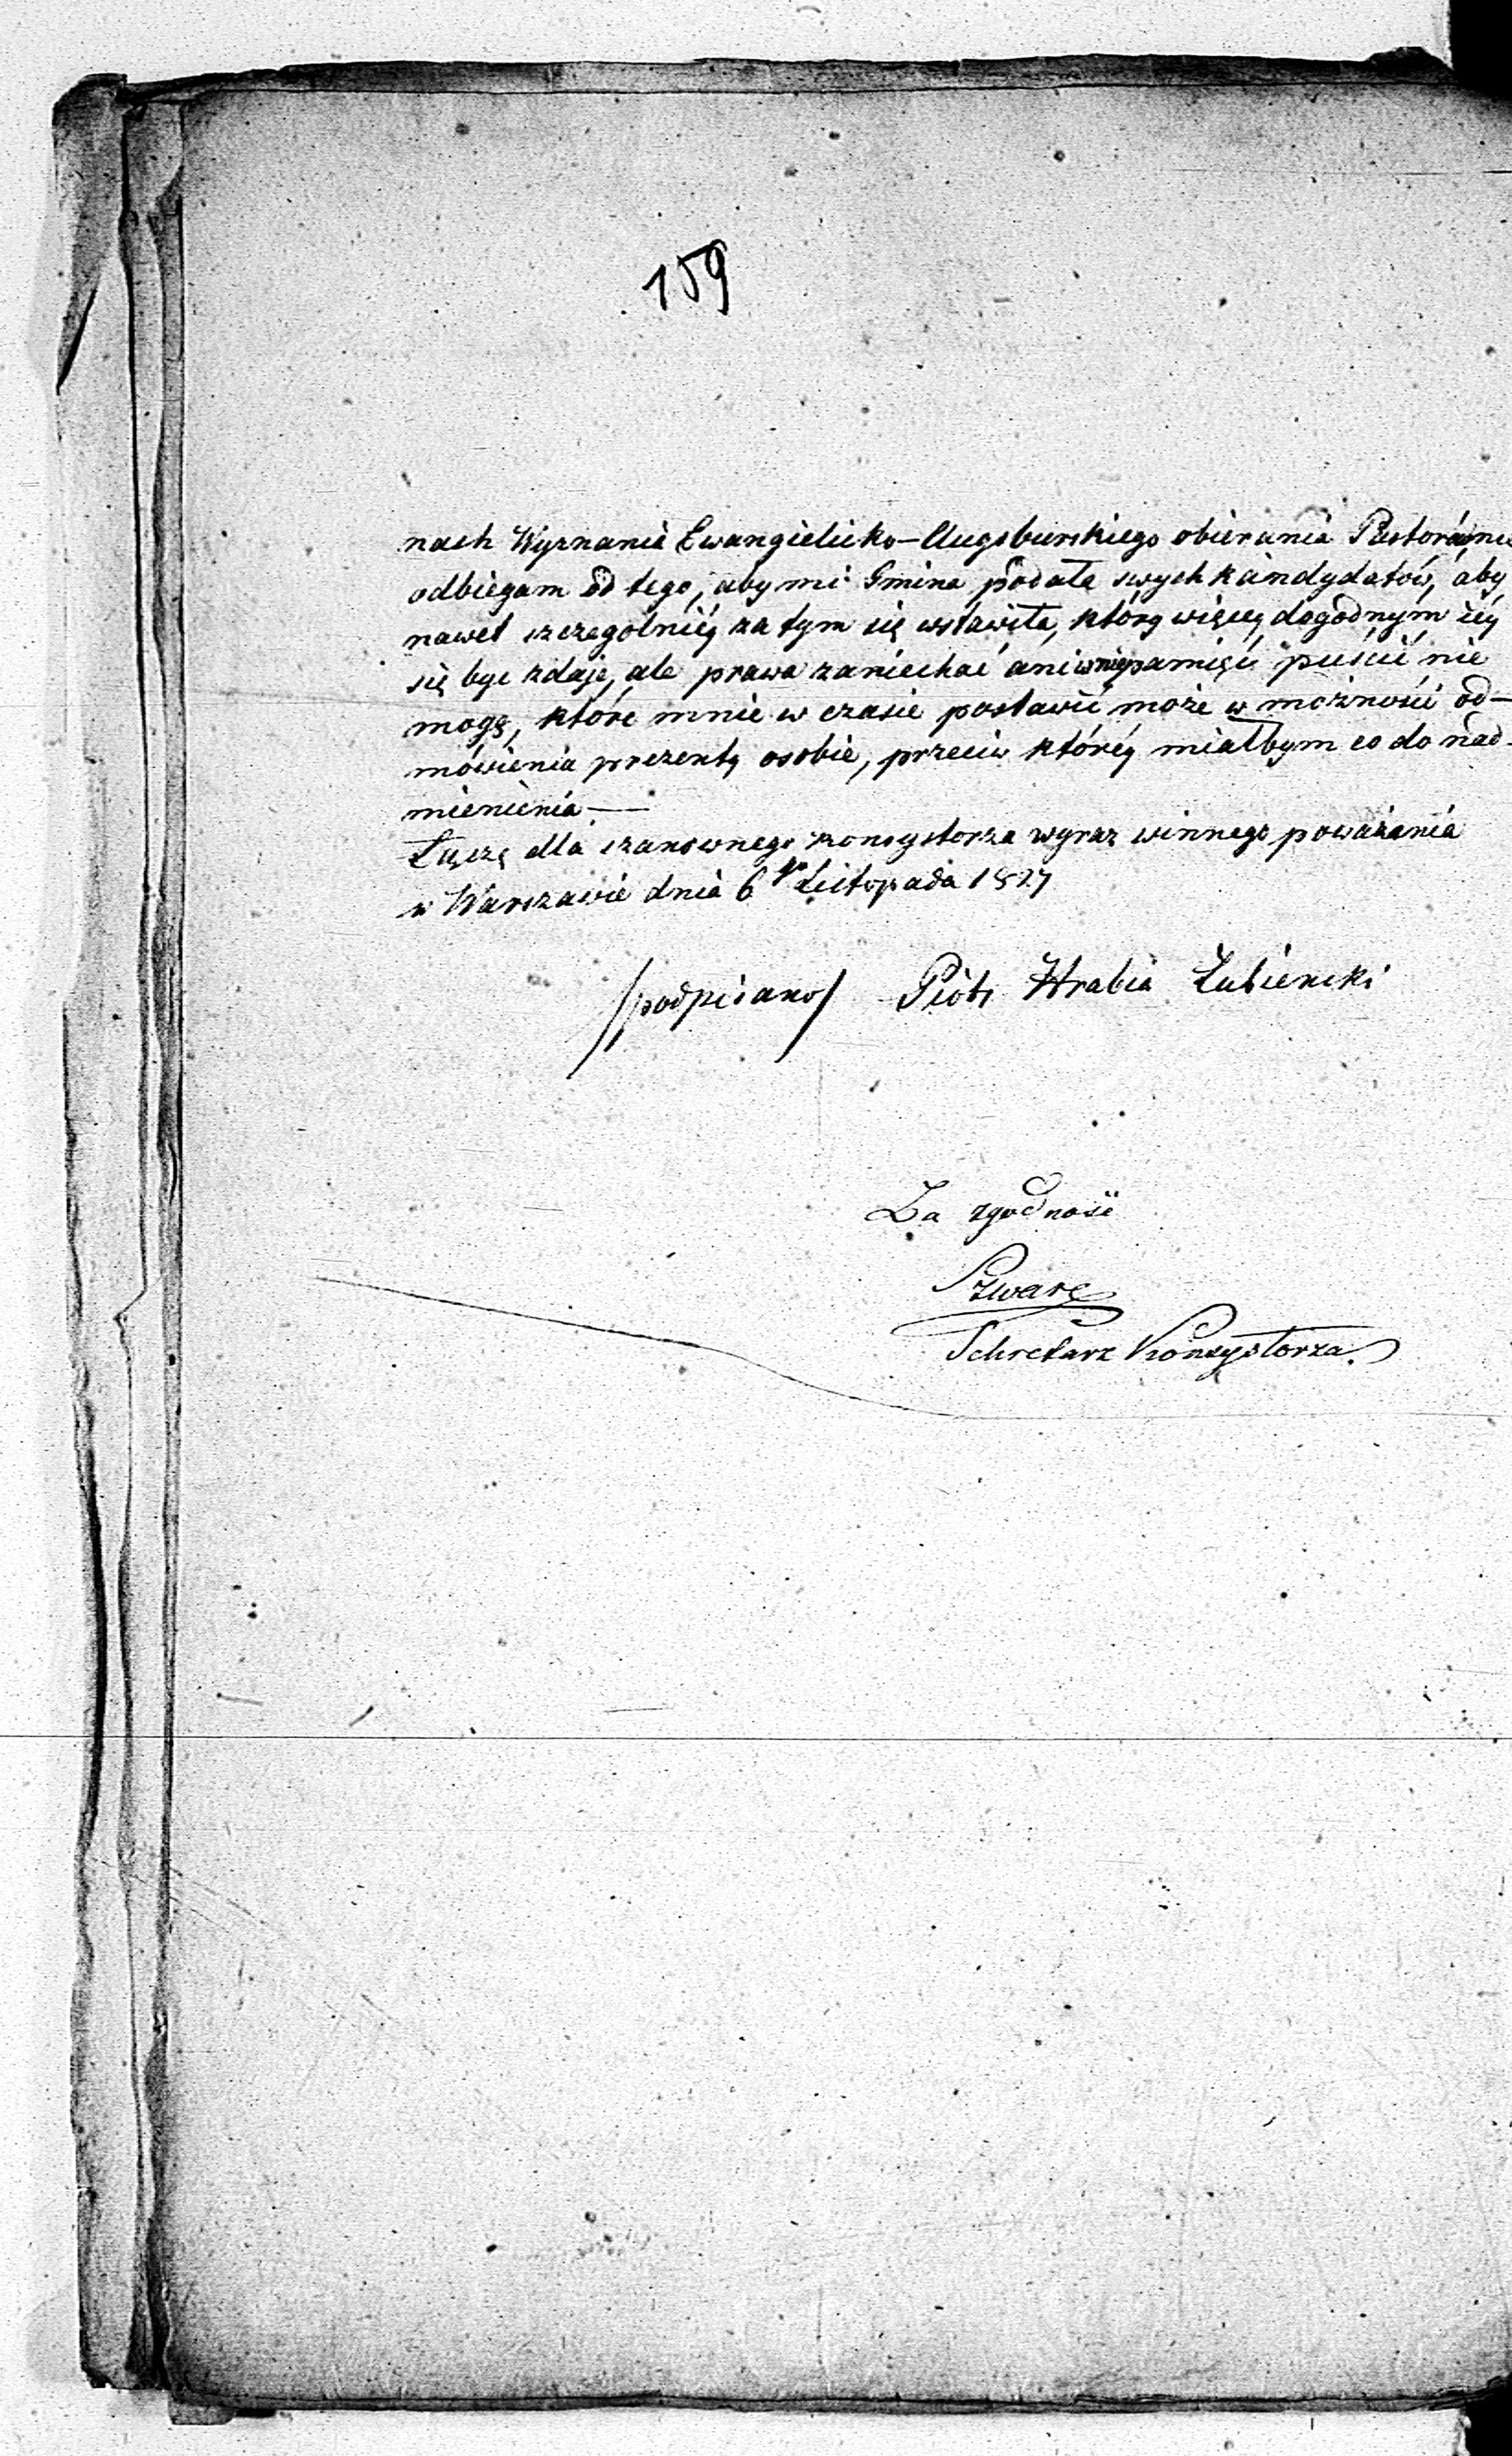 159
nach Wyznania Ewangielicko-Augsburskiego obierania Pastora, nie
odbiegam od tego, aby mi Gmina podała swych kandydatów, aby
nawet szczegolniéy za tym się wstawiła, który więcéy dogodnym iéy
się byc zdaje, ale prawa zaniechać ani w niepamięć puścić nie
mogę, które mnie w czasie postawić może w możności od-
mówienia prezenty osobie, przeciw któréy miałbym co do nad-
mienienia.—
Łączę dla szanownego konsystorza wyraz winnego poważania
w Warszawie dnia 6go Listopada 1827
/podpisano/ Piotr Hrabia Łubieński
Za zgodność
Szwarc
Sekretarz Konsystorza.